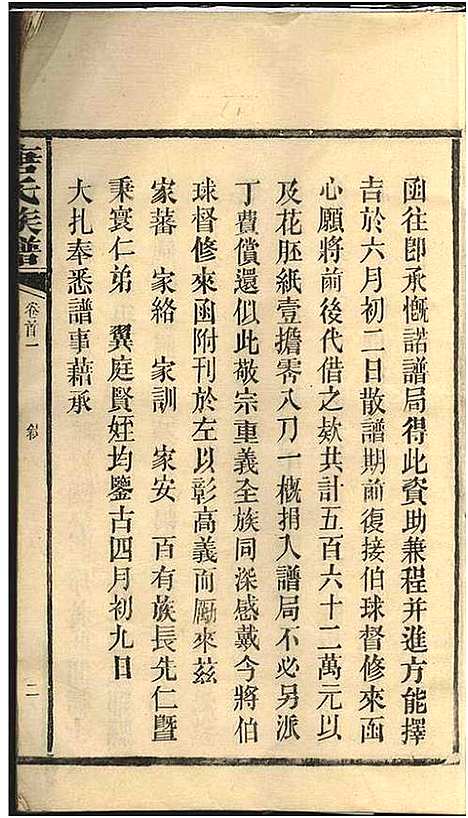 函往卽承慨諾譜局得此資助兼程幷進方能擇
吉於六月初二日散譜期前復接伯球督修來函
心願將前後代借之欵共計五百六十二萬元以
及花胚紙壹擔零八刀一概捐入譜局不必另派
丁費償還似此敬宗重義全族同深感戴今將伯
球督修來函附刊於左以彰高義而勵來茲
家蕃 家絡 家訓 家安 百有族長先仁曁
秉寰仁弟 翼庭賢姪均鑒古四月初九日
大扎奉悉譜事藉承
唐氏族譜
卷首一
敘
二